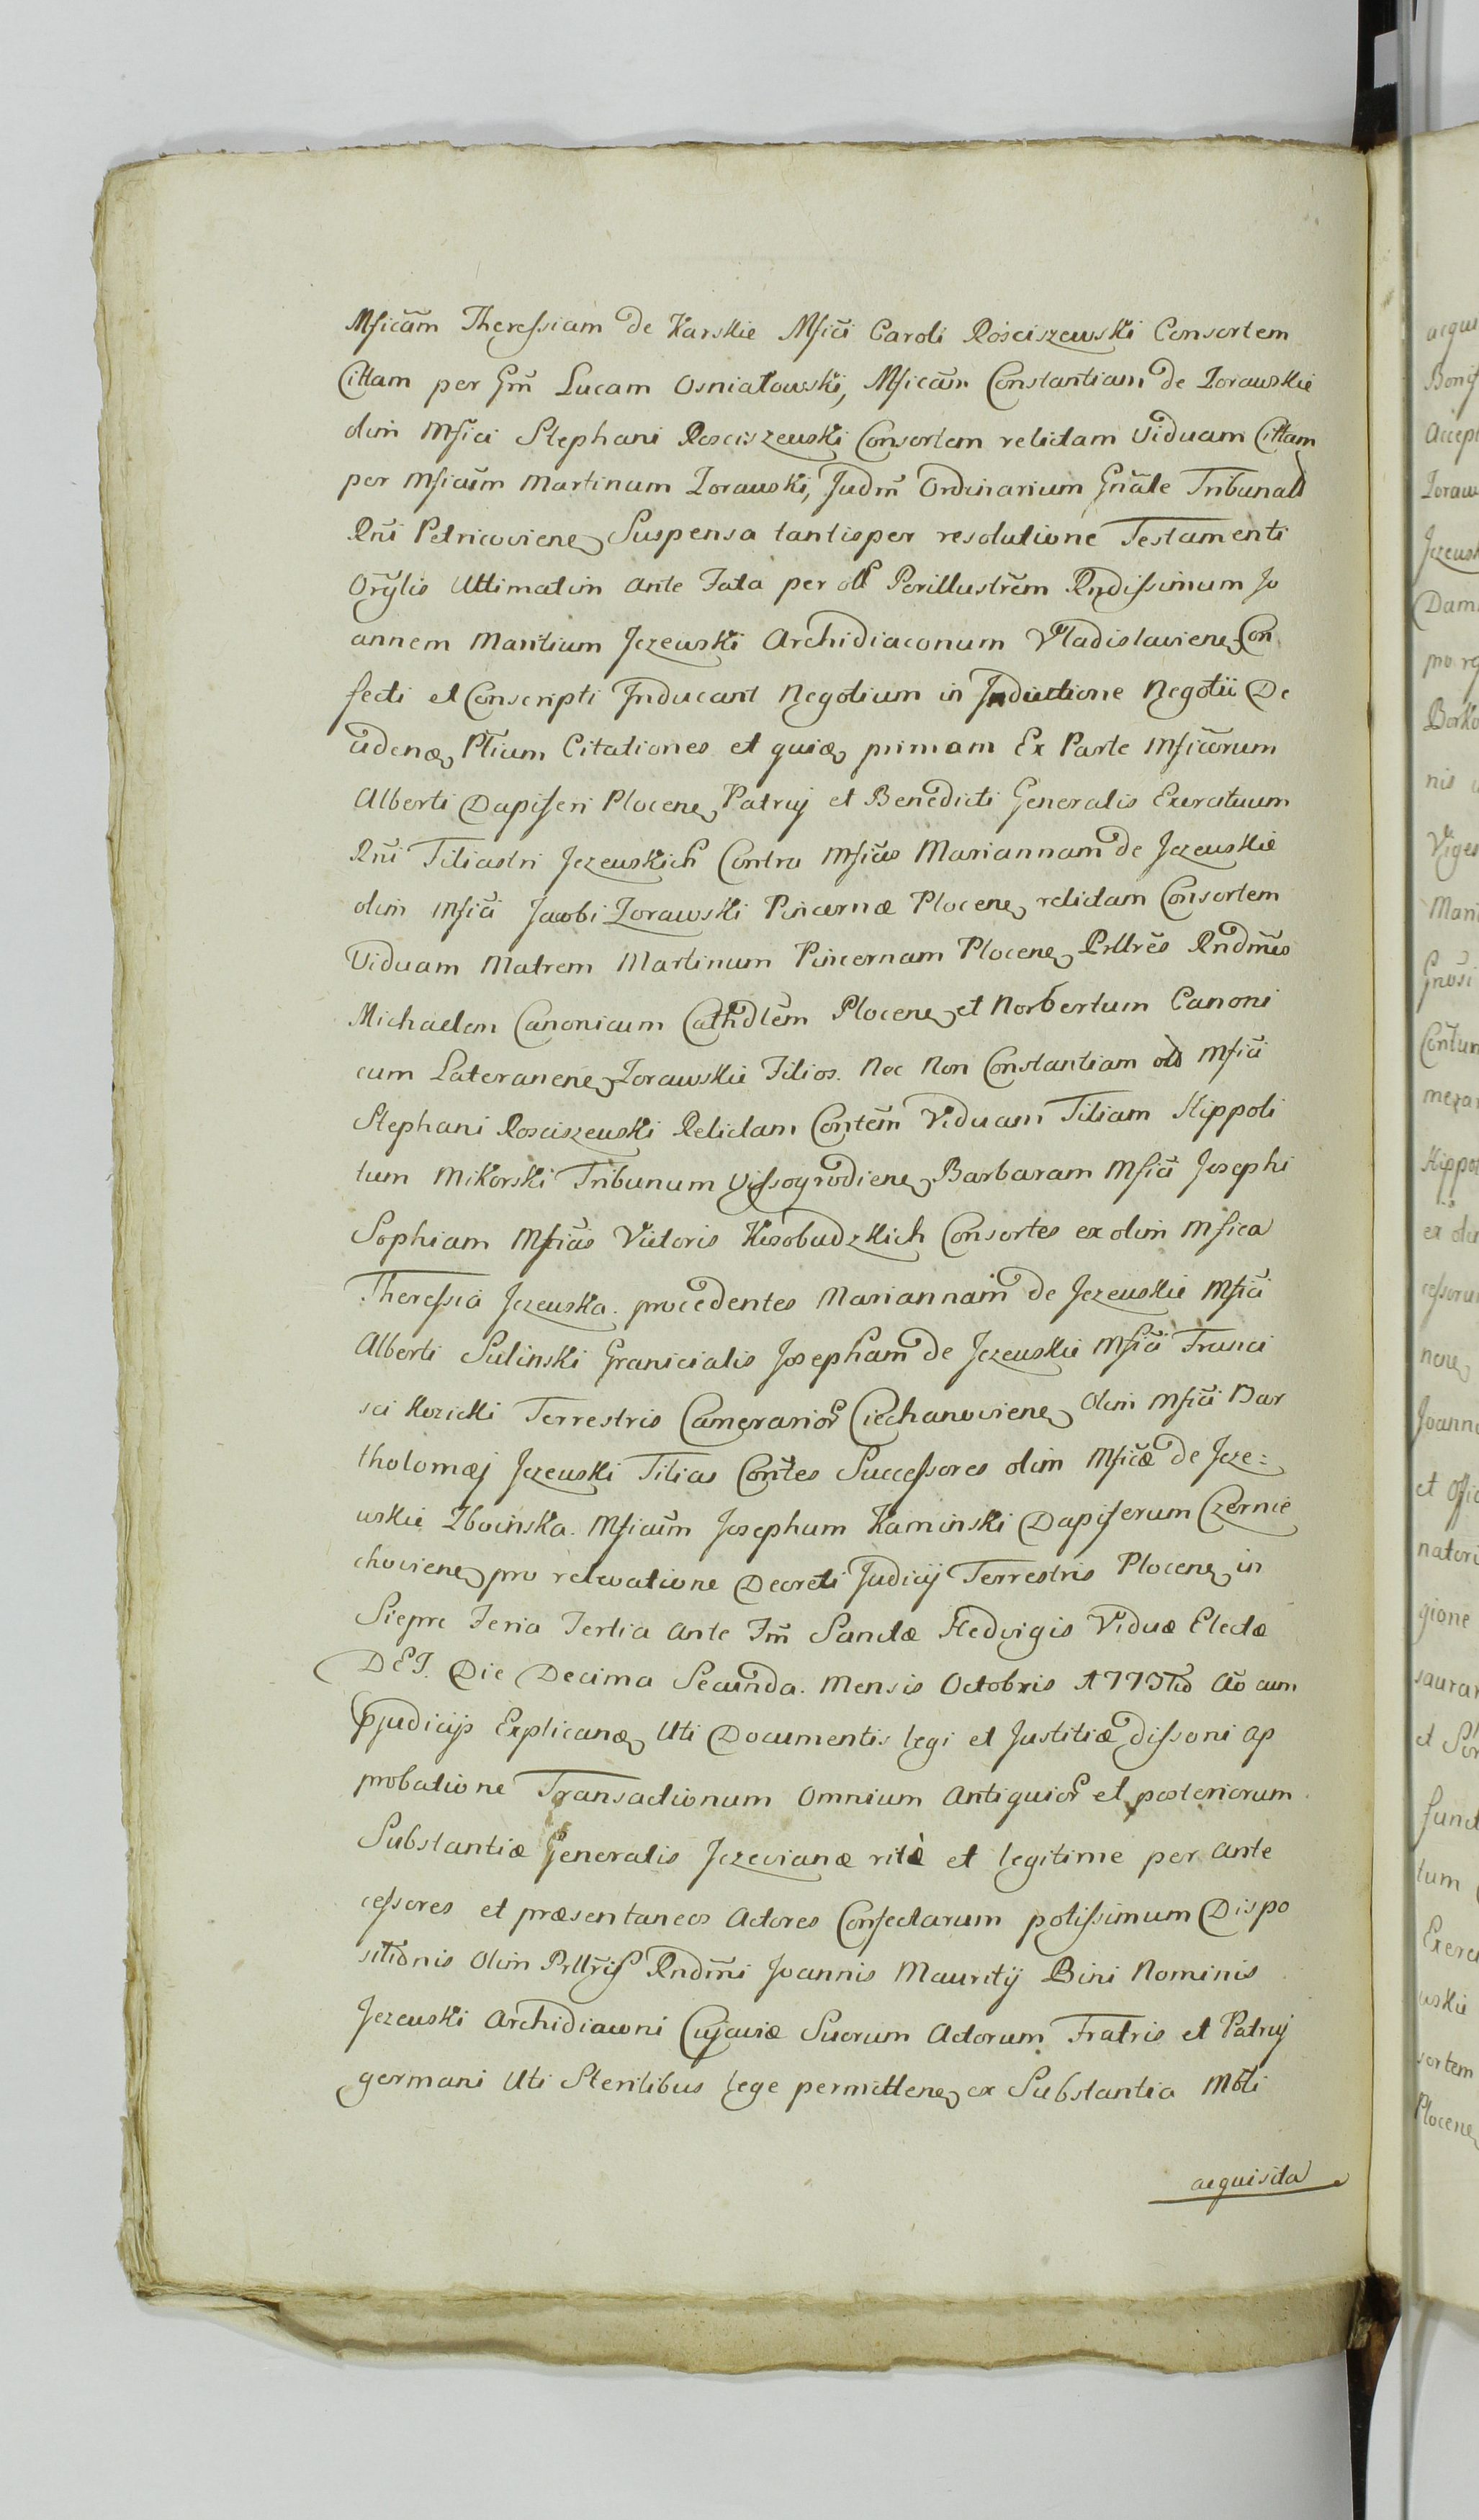 Mficam̃ Theressiam de Karskie Mfici Caroli Rościszewski Consortem
Cittam per Gm̃ Lucam Osniałowski, Mficam̃ Constantiam de Zorawskie
olim Mfici Stephani Rosciszewski Consortem relictam Viduam Cittam
per Mficum̃ Martinum Zorawski, Judm̃ Ordinarium Gñale Tribunalis
Rñi Petricoviene Suspensa tantisper resolutione Testamenti
Orÿlis Ultimatim ante Fata per oll Perillustrem̃ Rndissimum Jo
annem Mauritium Jezewski Archidiaconum Vladislaviene Con
fecti et Conscripti Inducant Negotium in Inductione Negotii De
cidenæ Ptium Citationes et quidem primam Ex Parte Mficorum
Alberti Dapiferi Plocene Patruj et Benedicti Generalis Exercituum
Rñi Filiastri Jezewskich Contra Mficas Mariannam de Jezewskie
olim Mfici Jacobi Zorawski Pincernæ Plocene relictam Consortem
Viduam Matrem Martinum Pincernam Plocene Prllrẽs Rndm̃os
Michaelem Canonicum Cathdlem̃ Plocene et Norbertum Canoni
cum Lateranene Zorawskie Filios. Nec Non Constantiam olo Mfici
Stephani Rosciszewski Relictam Contem̃ Viduam Filiam Hippoli
tum Mikorski Tribunum Vissogrodiene Barbaram Mfici Josephi
Sophiam Mficas Victoris Kosobudzkich Consortes ex olim Mfica
Theressia Jezewska. procedentes Mariannam de Jezewskie Mfici
Alberti Sulinski Granicialis Josepham de Jezewskie Mfici Franci
sci Kozicki Terrestris Camerarior Ciechanoviene Olim Mfici Bar
tholomæj Jezewski Filias Contes Successores olim Mficæ de Jeze=
wskie Zboinska. Mficum̃ Josephum Kaminski Dapiferum Czernie
choviene pro relevatione Decreti Judicij Terrestris Plocene in
Sieprc Feria Tertia ante Fm̃ Sanctæ Hedvigis Viduæ Electæ
DEI. Die Decima Secunda. Mensis Octobris 1773tio Ao cum
Pjudicijs Explicanæ Uti Documentis legi et Justitiæ dissoni ap
probatione Transactionum Omnium Antiquior et posteriorum
Substantiæ Generalis Jezevianæ ritè et legitime per Ante
cessores et præsentaneos Actores Confectarum potissimum Dispo
sitionis Olim Prllris Rndm̃i Joannis Mauritij Bini Nominis
Jezewski Archidiaconi Cujaviæ Suorum Actorum Fratris et Patruj
germani Uti Sterilibus lege permittene ex Substantia Mbli
acquisita